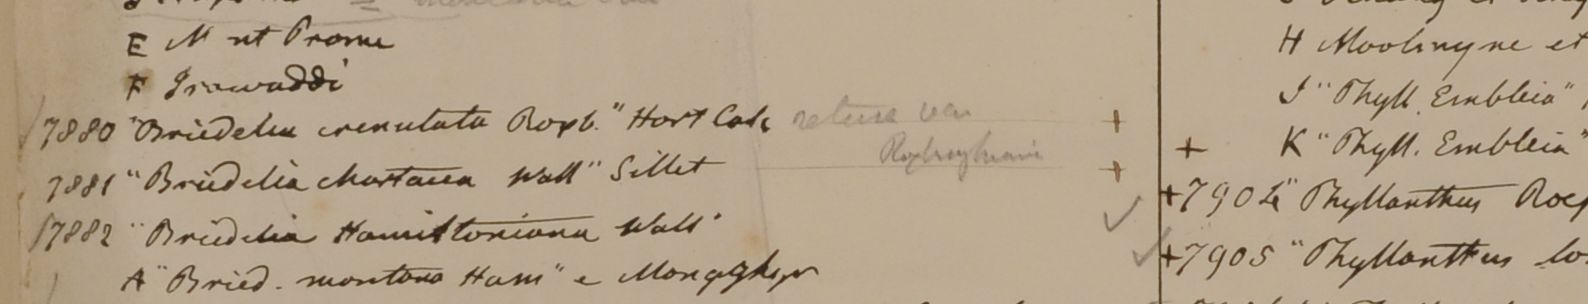 E Mont Prome
F Irawaddi
7880 "Briedelia crenulata Roxb." Hort Calc retusa var
Roxburghiana
7881 "Briedelia chartacea Wall" Sillet
7882 "Briedelia Hamiltoniana Wall"
A "Bried. montana Ham" e
H Moolmyne et
J "Phyll. Emblica"
+ K "Phyll. Emblica"
+7904 "Phyllanthus
+7905 "Phyllanthus